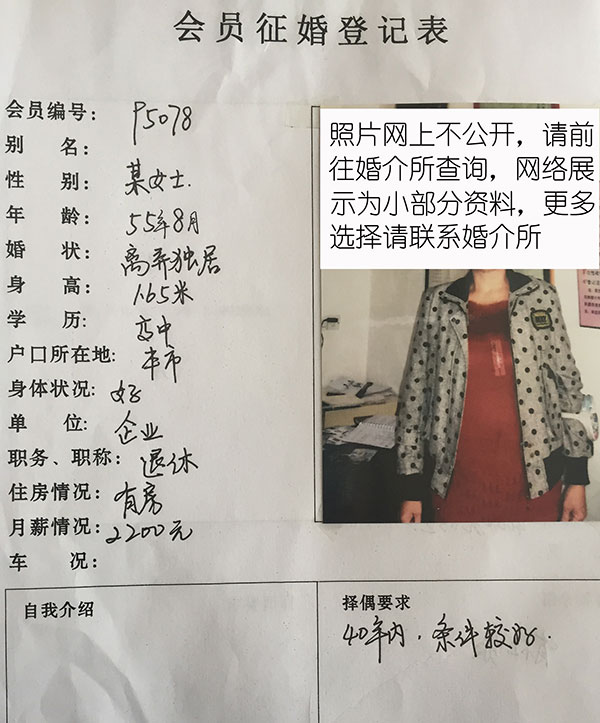 会员征婚登记表
会员编号: P5078
别 名:
性 别: 某女士.
年 龄: 55年8月
婚 状: 离异独居
身 高: 1.65米
学 历: 高中
户口所在地: 本市
身体状况: 好
单 位: 企业
职务、职称: 退休
住房情况: 有房
月薪情况: 2200元
车 况:
照片网上不公开，请前
往婚介所查询，网络展
示为小部分资料，更多
选择请联系婚介所
自我介绍
择偶要求
40年内，条件较好.